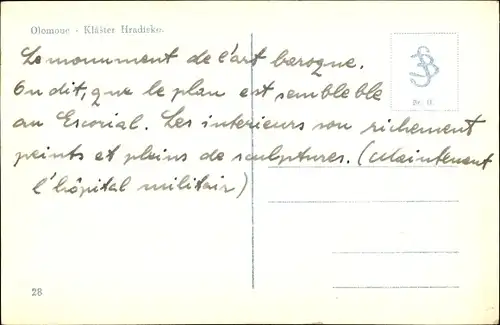 Olomouc - Klášter Hradisko.
Le monument de l'art baroque.
On dit, que le plan est sembleble
au Escorial. Les interieurs son richement
peints et pleins de sculptures. (Maintenant
l'hôpital militair)
Br. II.
28